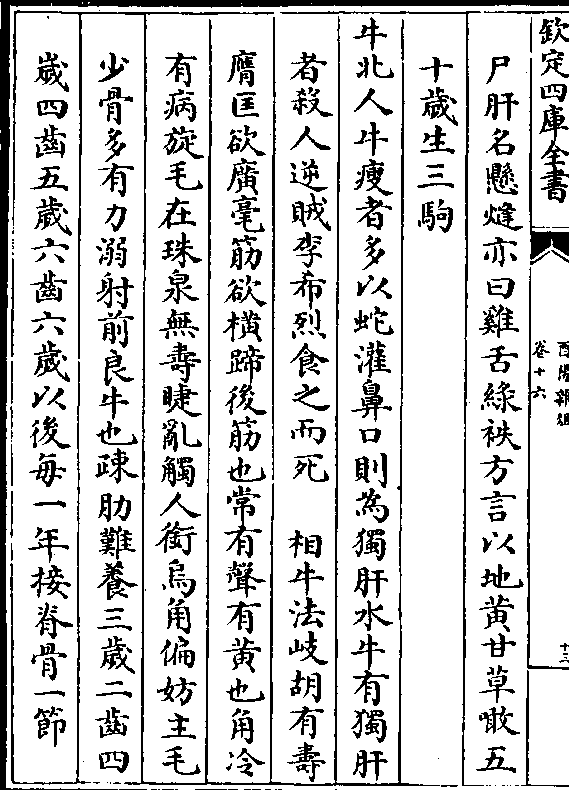 欽定四庫全書
酉陽雜俎
卷十六
十三
尸肝名懸熢亦曰雞舌綠袟方言以地黃甘草噉五
十歲生三駒
牛北人牛瘦者多以蛇灌鼻口則為獨肝水牛有獨肝
者殺人逆賊李希烈食之而死 相牛法岐胡有壽
膺匡欲廣毫筋欲橫蹄後筋也常有聲有黃也角冷
有病旋毛在珠泉無壽睫亂觸人銜烏角偏妨主毛
少骨多有力溺射前良牛也疎肋難養三歲二齒四
歲四齒五歲六齒六歲以後每一年接脊骨一節